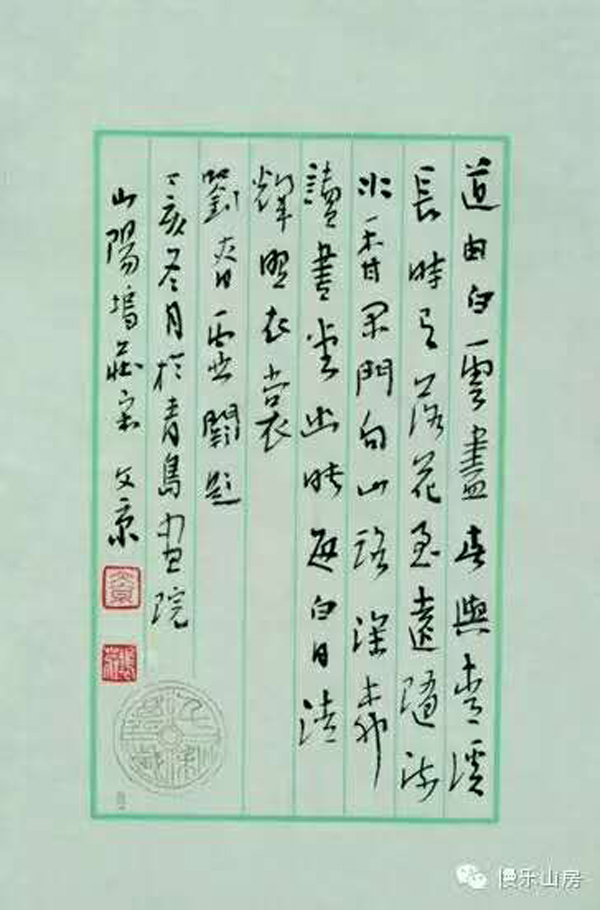 道由白雲盡春與青溪
長時有落花至遠隨流
水香閑門向山路深柳
讀書堂幽映每白日清
輝照衣裳
劉眘虛闕題
丁亥冬月於青島画院
山陽塢莊宋文京
文京
慢乐山房